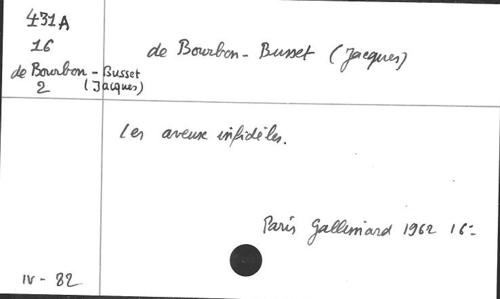 431A
16
de Bourbon - Busset
2 (Jacques)
de Bourbon - Busset (Jacques)
Les aveux infidèles.
Paris Gallimard 1962 16=
IV - 82